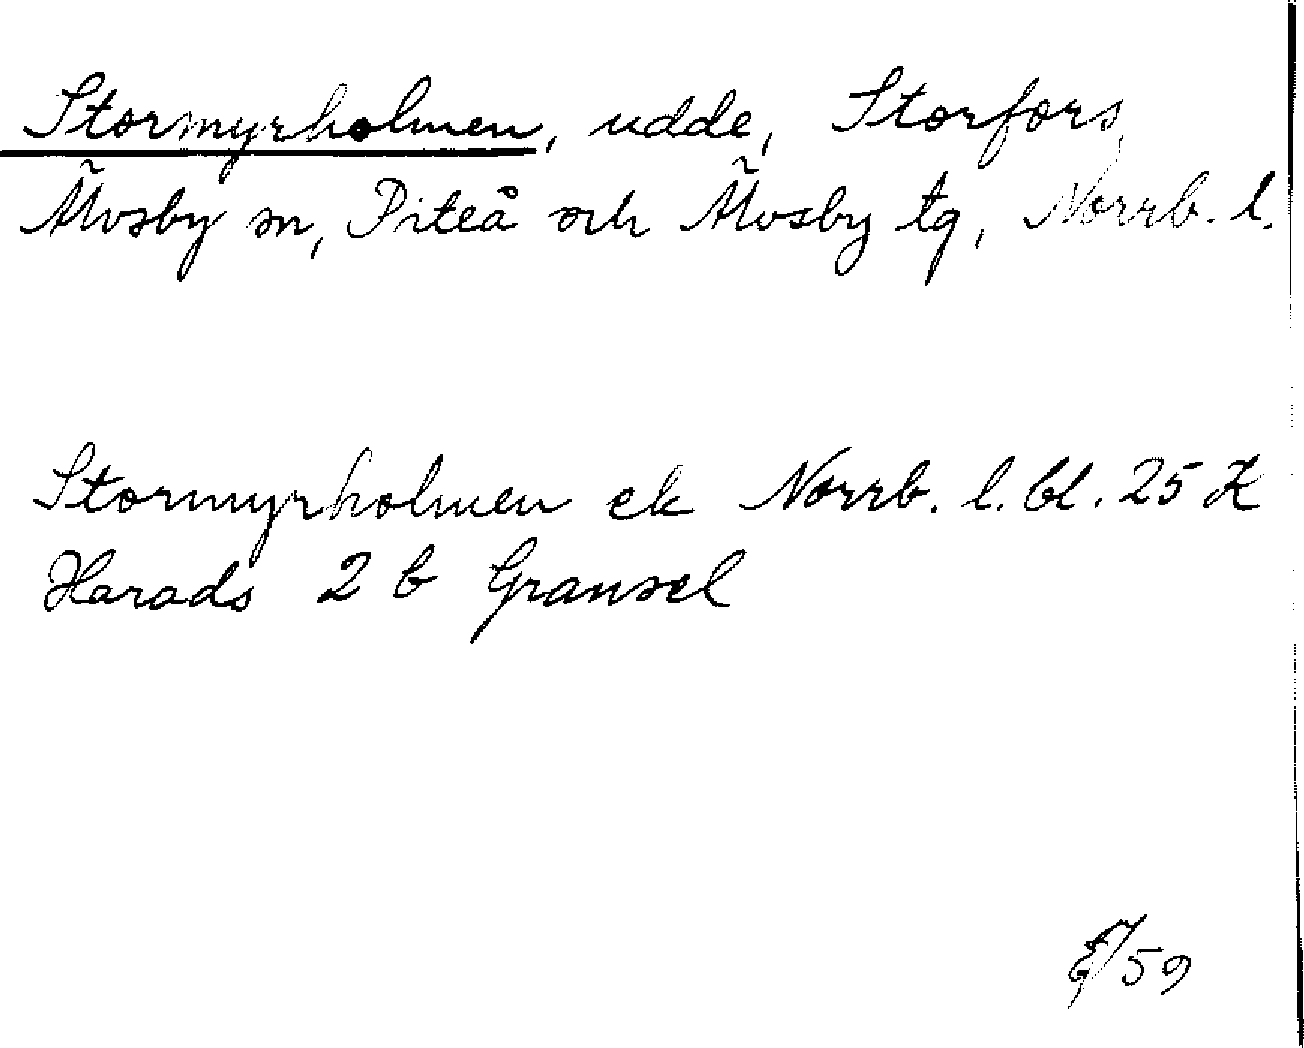 Stormyrholmen, udde, Storfors,
Älvsby sn, Piteå och Älvsby tg, Norrb. l.
Stormyrholmen ek Norrb. l. bl. 25 K
Harads 2 b Gransel
/59